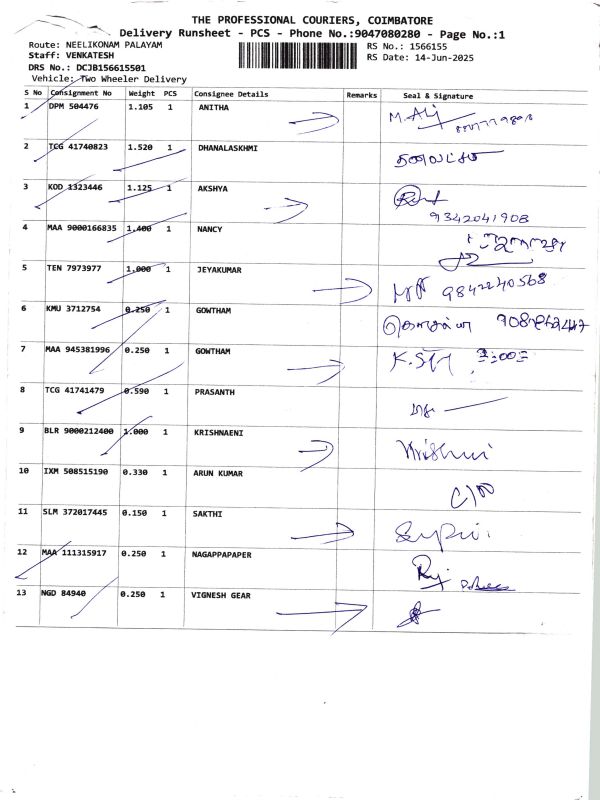 THE PROFESSIONAL COURIERS, COIMBATORE
Delivery Runsheet - PCS - Phone No.:9047080280 - Page No.:1
Route: NEELIKONAM PALAYAM
RS No.: 1566155
Staff: VENKATESH
RS Date: 14-Jun-2025
DRS No.: DCJB156615501
Vehicle: Two Wheeler Delivery
S No Consignment No Weight PCS Consignee Details Remarks Seal & Signature
1 DPM 504476 1.105 1 ANITHA M. Ali
2 TCG 41740823 1.520 1 DHANALASKHMI
3 KOD 1323446 1.125 1 AKSHYA
9342041908
4 MAA 9000166835 1.400 1 NANCY
5 TEN 7973977 1.000 1 JEYAKUMAR 9842240568
6 KMU 3712754 0.250 1 GOWTHAM
7 MAA 945381996 0.250 1 GOWTHAM
8 TCG 41741479 0.590 1 PRASANTH
9 BLR 9000212400 1.000 1 KRISHNAENI
10 IXM 508515190 0.330 1 ARUN KUMAR
11 SLM 372017445 0.150 1 SAKTHI
12 MAA 111315917 0.250 1 NAGAPPAPAPER
13 NGD 84940 0.250 1 VIGNESH GEAR